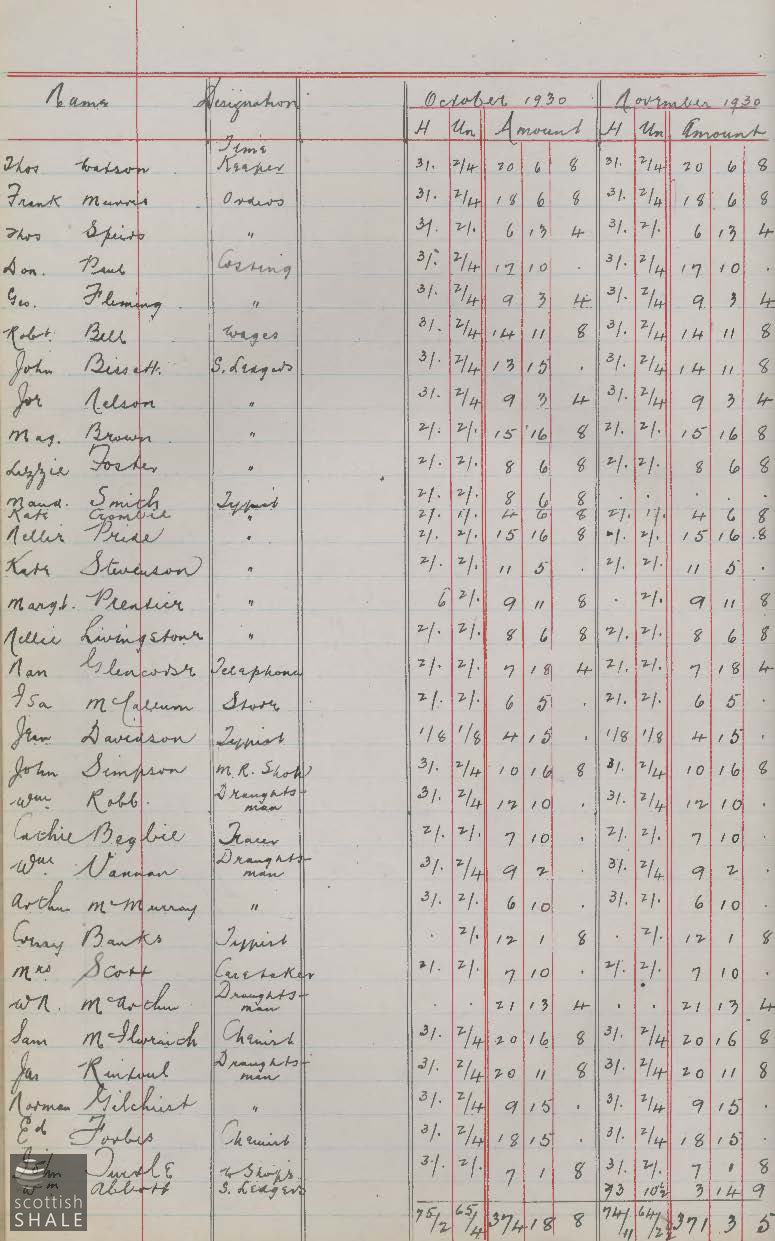 Name Designation October 1930 November 1930
H Un Amount H Un Amount
Thos Watson Time Keeper 3/. 2/4 20 6 8 3/. 2/4 20 6 8
Frank Orders 3/. 2/4 18 6 8 3/. 2/4 18 6 8
Thos Speirs " 3/. 2/. 6 13 4 3/. 2/. 6 13 4
Don. Paul Costing 3/. 2/4 17 10 . 3/. 2/4 17 10 .
Geo. Fleming " 3/. 2/4 9 3 4 3/. 2/4 9 3 4
Robt. Bell Wages 3/. 2/4 14 11 8 3/. 2/4 14 11 8
John Bissett. S. Ledgers 3/. 2/4 13 15 . 3/. 2/4 14 11 8
Jos Nelson " 3/. 2/4 9 3 4 3/. 2/4 9 3 4
Mag. Brown " 2/. 2/. 15 16 8 2/. 2/. 15 16 8
Lizzie Foster " 2/. 2/. 8 6 8 2/. 2/. 8 6 8
Maud. Smith Typist 2/. 2/. 8 6 8 . . . . .
Kate Crombie " 2/. 1/. 4 6 8 2/. 1/. 4 6 8
Nellie Pride " 2/. 2/. 15 16 8 2/. 2/. 15 16 8
Kate Stevenson " 2/. 2/. 11 5 . 2/. 2/. 11 5 .
Margt. Prentice " 6 2/. 9 11 8 . 2/. 9 11 8
Nellie Livingstone " 2/. 2/. 8 6 8 2/. 2/. 8 6 8
Nan Glencorse Telephone 2/. 2/. 7 18 4 2/. 2/. 7 18 4
Isa McCallum Store 2/. 2/. 6 5 . 2/. 2/. 6 5 .
Jean Davidson Typist 1/8 1/8 4 15 . 1/8 1/8 4 15 .
John Simpson M.R. Shop 3/. 2/4 10 16 8 3/. 2/4 10 16 8
Wm Robb. Draughts-man 3/. 2/4 12 10 . 3/. 2/4 12 10 .
Cathie Begbie Tracer 2/. 2/. 7 10 . 2/. 2/. 7 10 .
Wm Vannan Draughts-man 3/. 2/4 9 2 . 3/. 2/4 9 2 .
Arthur McMurray " 3/. 2/. 6 10 . 3/. 2/. 6 10 .
Banks Typist . 2/. 12 1 8 . 2/. 12 1 8
Mrs Scott Caretaker 2/. 2/. 7 10 . 2/. 2/. 7 10 .
WR. McArthur Draughts-man . . 21 13 4 . . 21 13 4
Sam McIlwraith Chemist 3/. 2/4 20 16 8 3/. 2/4 20 16 8
Jas Rintoul Draughts-man 3/. 2/4 20 11 8 3/. 2/4 20 11 8
Norman Gilchrist " 3/. 2/4 9 15 . 3/. 2/4 9 15 .
Ed Forbes Chemist 3/. 2/4 18 15 . 3/. 2/4 18 15 .
John W Shops 3/. 2/. 7 1 8 3/. 2/. 7 1 8
Wm Abbott S. Ledgers 3 14 9
75/2 65/4 374 18 8 74/11 371 3 5
scottish
SHALE